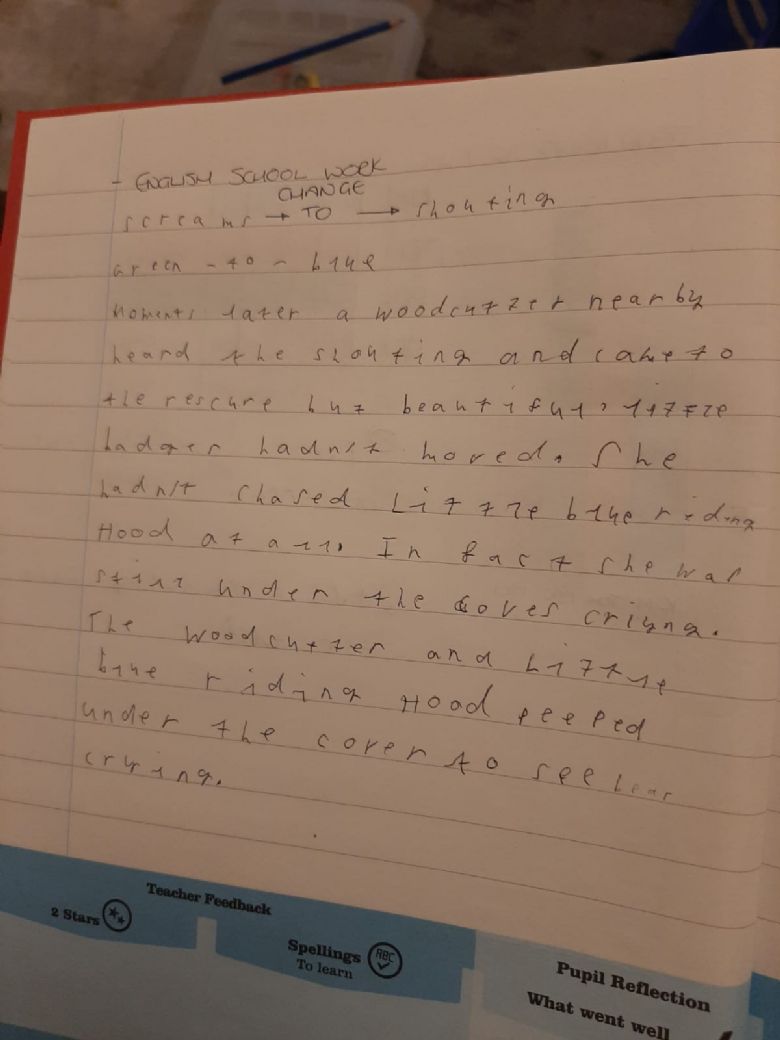 - ENGLISH SCHOOL WORK
CHANGE
screams → TO → shouting
green - to - blue
Moments later a woodcutter nearby
heard the shouting and came to
the rescure but beautiful, little
badger hadn't moved. She
hadn't chased Little blue riding
Hood at all. In fact she was
still under the coves criyng.
The woodcutter and Little
blue riding Hood peeped
under the cover to see bear
crying.
Teacher Feedback
2 Stars
Spellings
ABC
To learn
Pupil Reflection
What went well